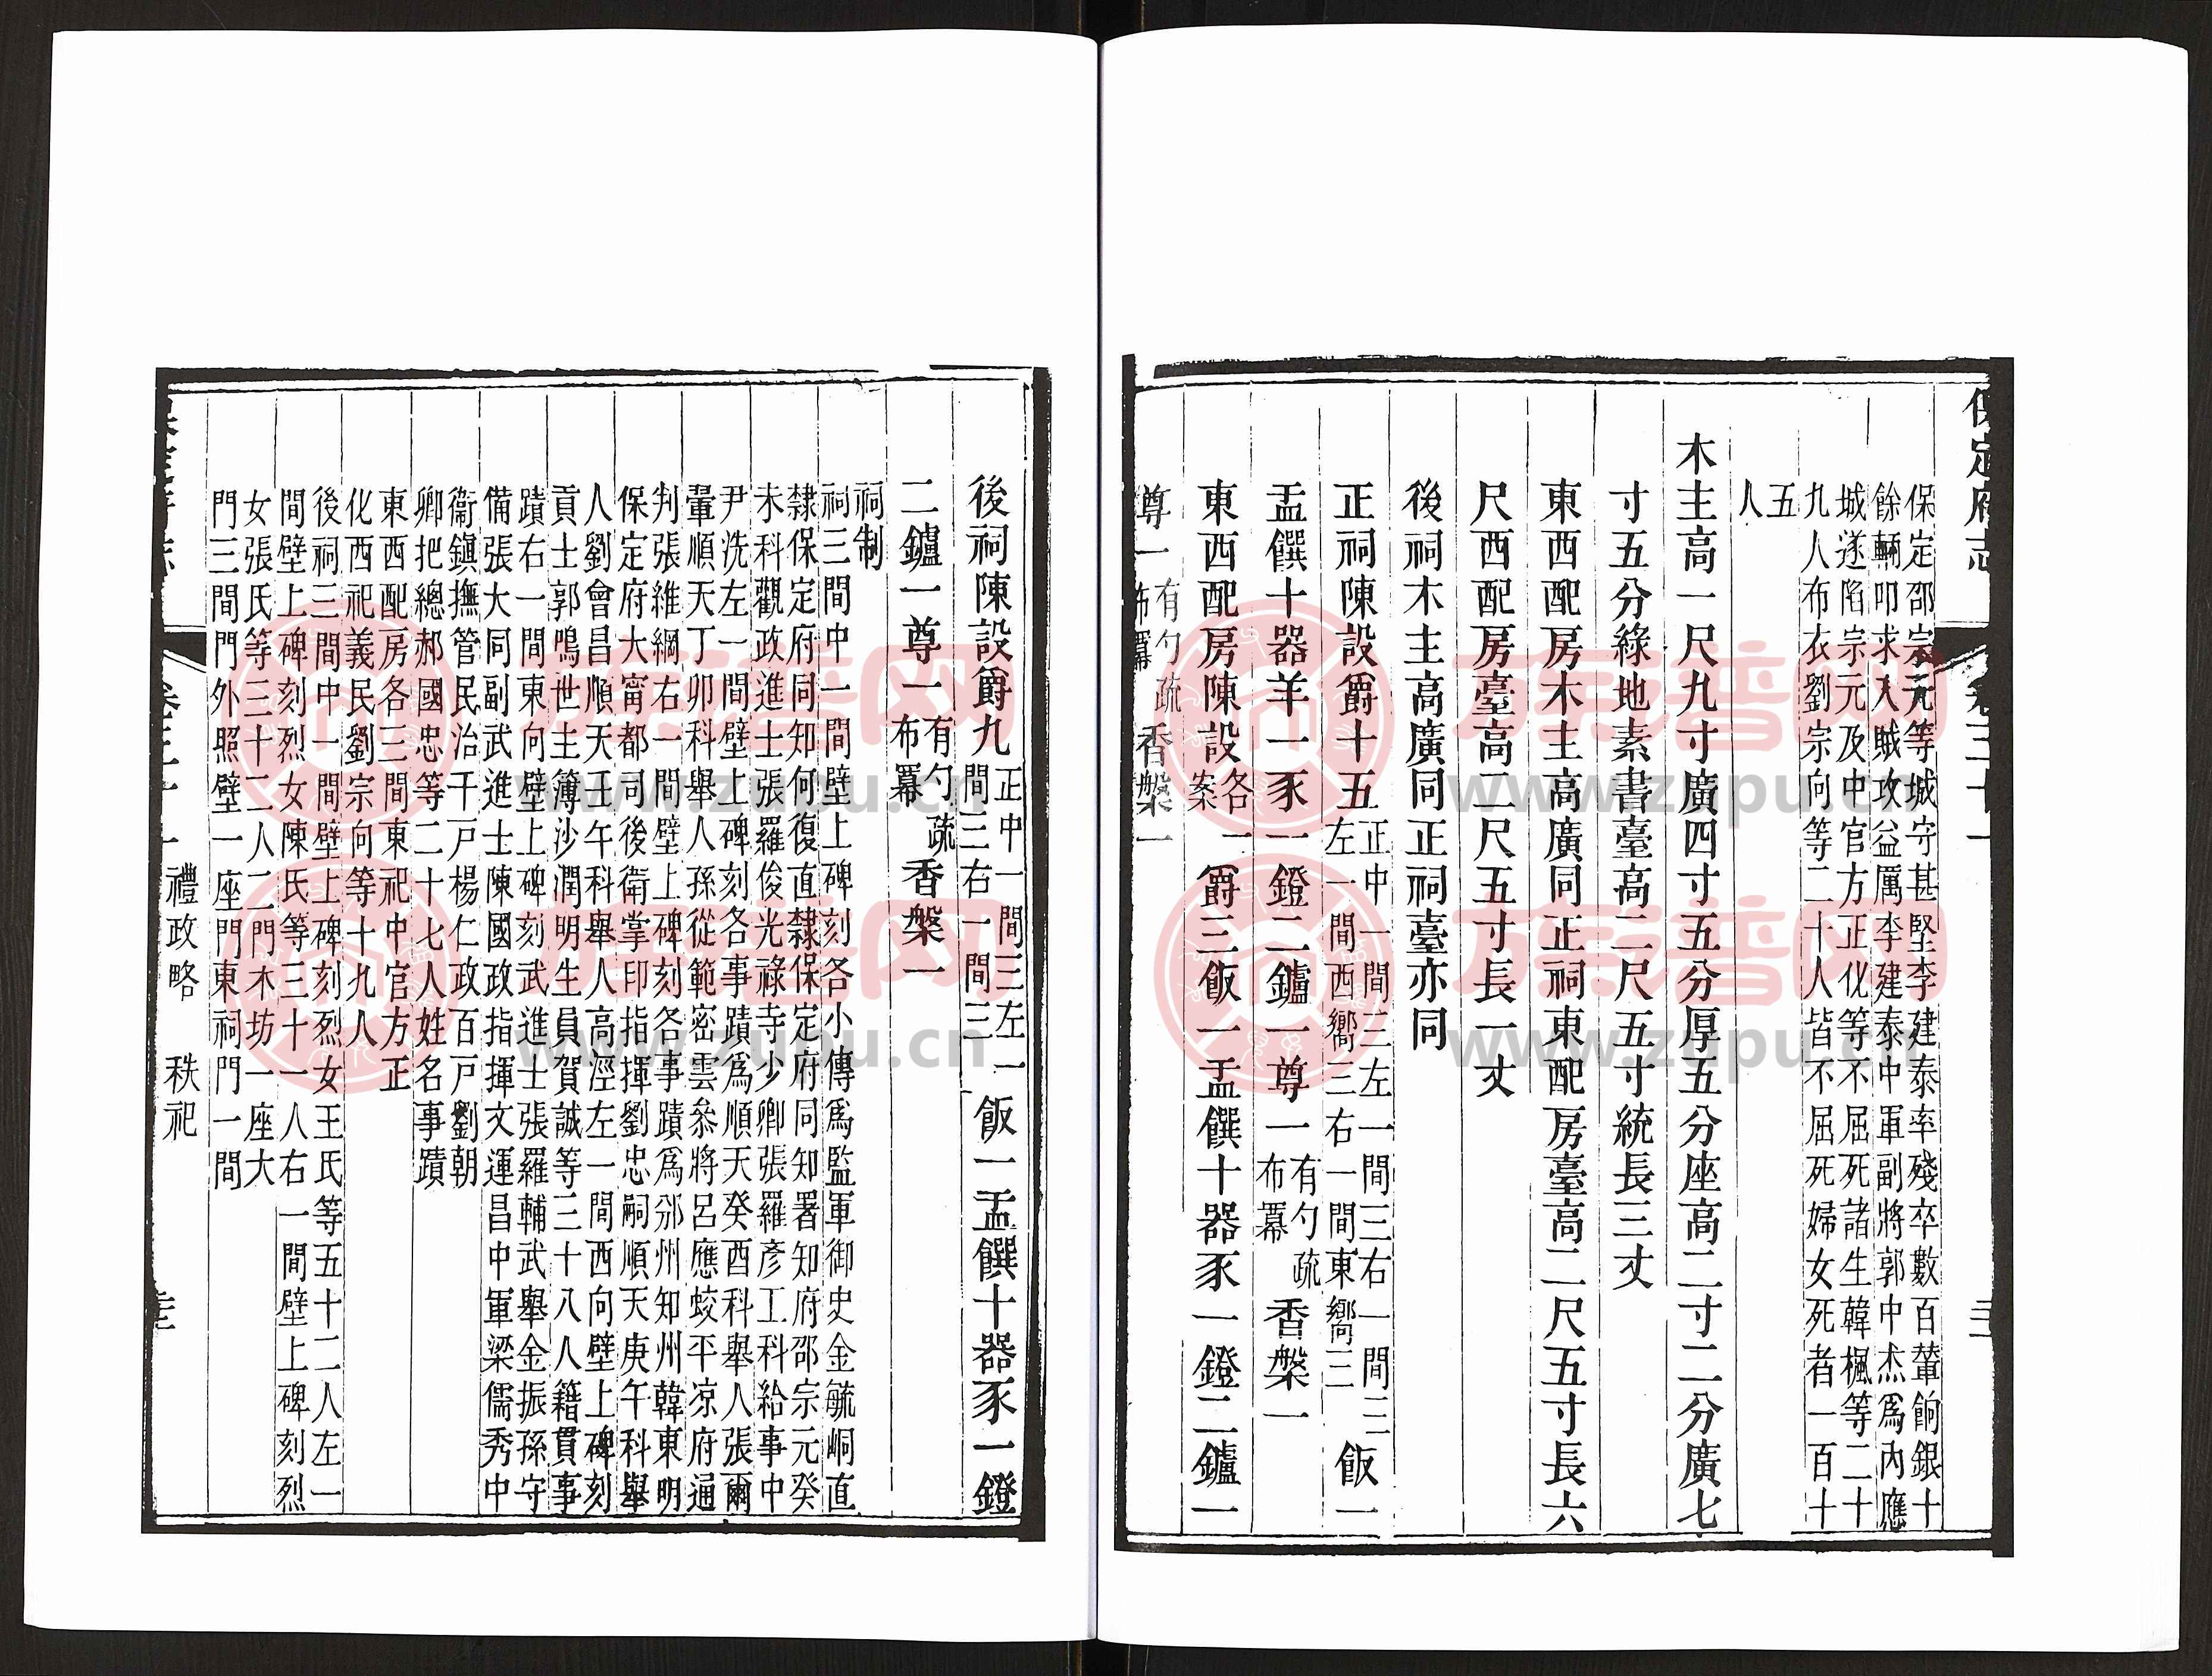 保定府志
卷三十一
保定邵宗元等城守甚堅李建泰率殘卒數百輦餉銀十
餘輛叩求入賊攻益厲李建泰中軍副將郭中杰爲內應
城遂陷宗元及中官方正化等不屈死諸生韓楓等二十
九人布衣劉宗向等二十人皆不屈死婦女死者一百十
五
人
木主高一尺九寸廣四寸五分厚五分座高二寸二分廣七
寸五分綠地素書臺高二尺五寸統長三丈
東西配房木主高廣同正祠東配房臺高二尺五寸長六
尺西配房臺高二尺五寸長一丈
後祠木主高廣同正祠臺亦同
正祠陳設爵十五正中一間三左一間三右一間三
左一間西嚮三右一間東嚮三飯一
盂饌十器羊一豕一鐙二鑪一尊一有勺疏
布冪香槃一
東西配房陳設各
案一爵三飯一盂饌十器豕一鐙二鑪一
尊一有勺疏
布冪香槃一
後祠陳設爵九正中一間三左一
間三右一間三飯一盂饌十器豕一鐙
二鑪一尊一有勺疏
布冪香槃一
祠制
祠三間中一間壁上碑刻各小傳爲監軍御史金毓峒直
隸保定府同知何復直隸保定府同知署知府邵宗元癸
未科觀政進士張羅俊光祿寺少卿張羅彥工科給事中
尹洗左一間壁上碑刻各事蹟爲順天癸酉科舉人張爾
翬順天丁卯科舉人孫從範密雲叅將呂應蛟平凉府通
判張維綱右一間壁上碑刻各事蹟爲邠州知州韓東明
保定府大甯都司後衛掌印指揮劉忠嗣順天庚午科舉
人劉會昌順天壬午科舉人高涇左一間西向壁上碑刻
貢士郭鳴世主簿沙潤明生員賀誠等三十八人籍貫事
蹟右一間東向壁上碑刻武進士張羅輔武舉金振孫守
備張大同副武進士陳國政指揮文運昌中軍梁儒秀中
衞鎭撫管民治千戸楊仁政百戸劉朝
卿把總郝國忠等二十七人姓名事蹟
東西配房各三間東祀中官方正
化西祀義民劉宗向等十九人
後祠三間中一間壁上碑刻烈女王氏等五十二人左一
間壁上碑刻烈女陳氏等三十一人右一間壁上碑刻烈
女張氏等三十二人二門木坊一座大
門三間門外照壁一座門東祠門一間
禮政略　秩祀